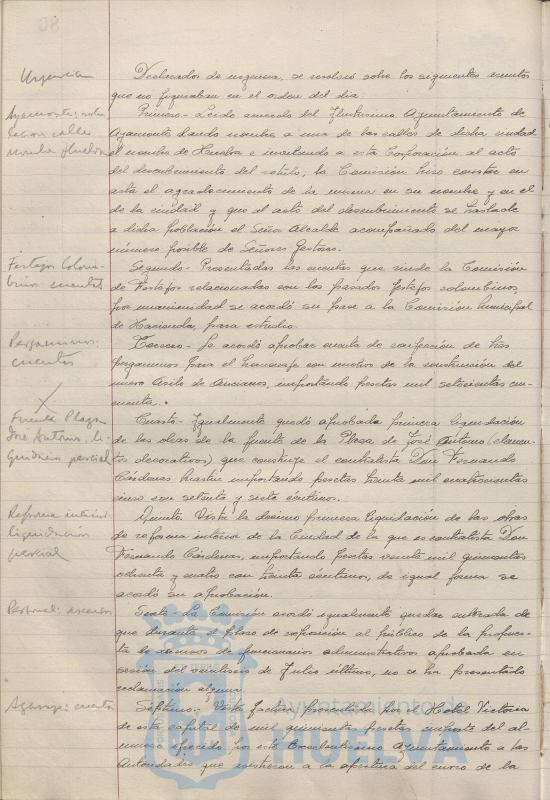 Urgencia
Declarados de urgencia, se resolvió sobre los siguientes asuntos
que no figuraban en el orden del día.
Ayamonte: rotu-
lación calle
nombre Huelva
Primero.- Leído acuerdo del Ilustrísimo Ayuntamiento de
Ayamonte dando nombre a una de las calles de dicha ciudad
el nombre de Huelva e invitando a esta Corporación al acto
del descubrimiento del rótulo, la Comisión hizo constar en
acta el agradecimiento de la misma en su nombre y en el
de la ciudad y que al acto del descubrimiento se traslade
a dicha población el Señor Alcalde acompañado del mayor
número posible de Señores Gestores.
Festejos Colom-
binos cuentas
Segundo.- Presentadas las cuentas que rinde la Comisión
de Festejos relacionadas con los pasados festejos colombinos
por unanimidad se acordó su pase a la Comisión Municipal
de Hacienda, para estudio.
Pergaminos:
cuentas
Tercero.- Se acordó aprobar cuenta de confección de tres
pergaminos para el homenaje con motivo de la construcción del
nuevo Asilo de Ancianos, importando pesetas mil setecientas cin-
cuenta.
Fuente Plaza
José Antonio: li-
quidación parcial
Cuarto.- Igualmente quedó aprobada primera liquidación
de las obras de la fuente de la Plaza de José Antonio (elemen-
tos decorativos) que construye el contratista Don Fernando
Cárdenas Huelva importando pesetas treinta mil cuatrocientas
cinco con setenta y siete céntimos.
Reforma interior
liquidación
parcial
Quinto.- Vista la décimo primera liquidación de las obras
de reforma interior de la Ciudad de la que es contratista Don
Fernando Cárdenas, importando pesetas veinte mil quinientas
ochenta y cuatro con treinta céntimos, de igual forma se
acordó su aprobación.
Personal: ascensos
Sexto.- La Comisión acordó igualmente quedar enterada de
que durante el plazo de exposición al público de la propues-
ta de ascensos de funcionarios administrativos aprobada en
sesión del veintiseis de Julio último, no se ha presentado
reclamación alguna.
Agasajo: cuenta
Séptimo.- Vista factura presentada por el Hotel Victoria
de esta capital de mil quinientas pesetas importe del al-
muerzo ofrecido por este Excelentísimo Ayuntamiento a las
Autoridades que asistieron a la apertura del curso de la
Ayuntamiento de
HUELVA